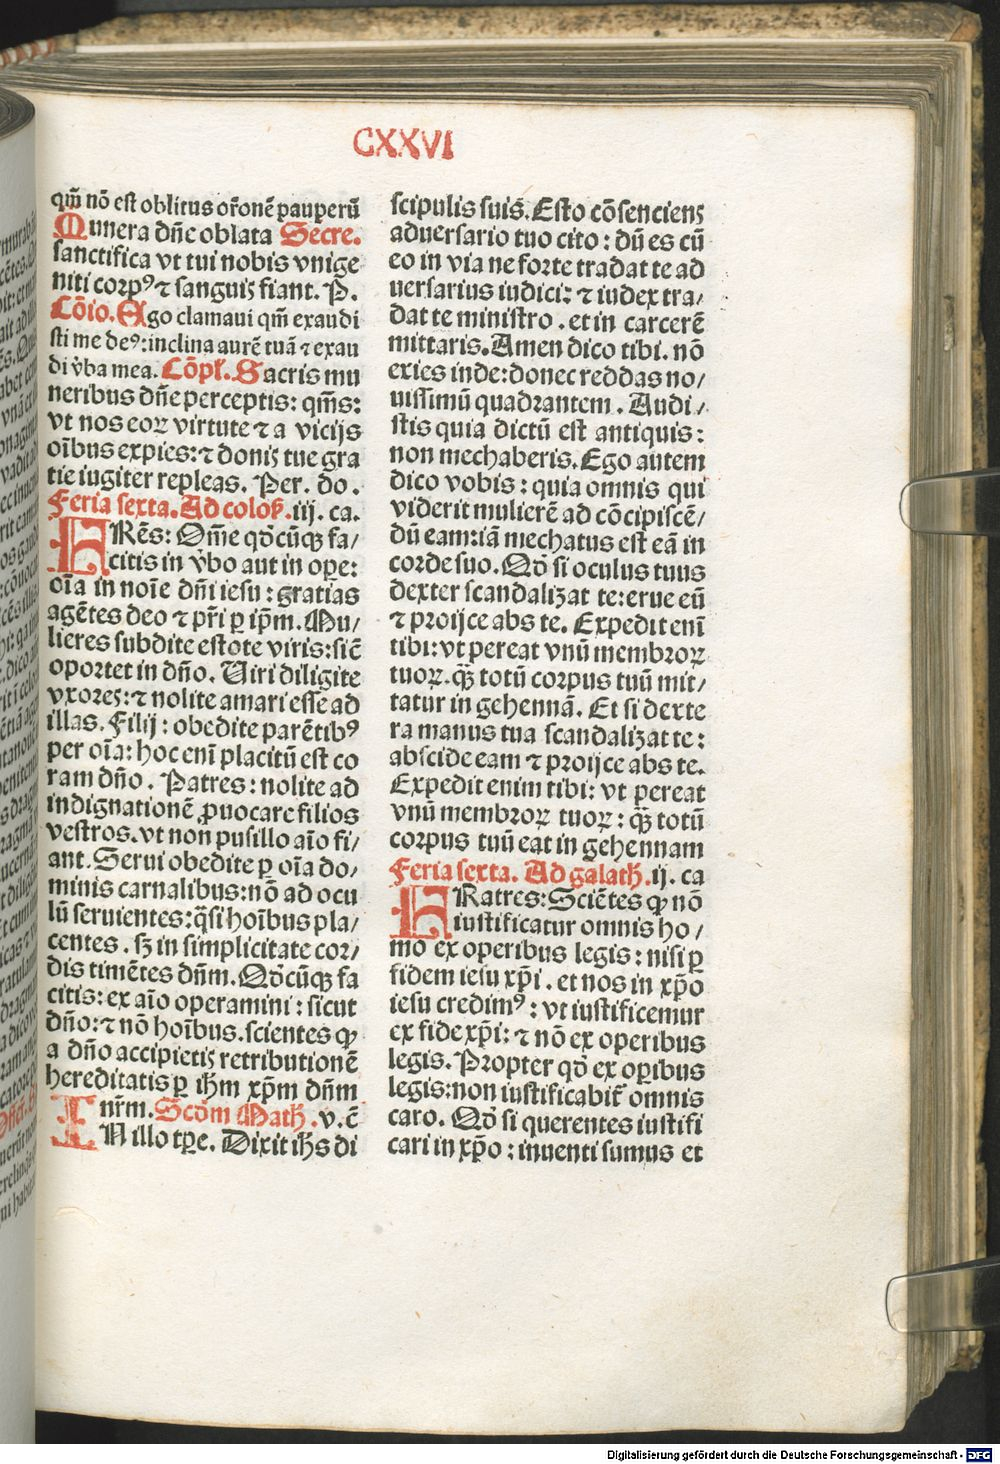 CXXVI
qm̄ nō est oblitus or̄onē pauperū
Munera dn̄e oblata Secre.
sanctifica vt tui nobis vnige
niti corpꝰ ⁊ sanguis fiant. P.
Cōio. Ego clamaui qm̄ exaudi
sti me deꝰ: inclina aurē tuā ⁊ exau
di v̄ba mea. Cōpl. Sacris mu
neribus dn̄e perceptis: qm̄s:
vt nos eoꝝ virtute ⁊ a vicijs
oībus expies: ⁊ donis tue gra
tie iugiter repleas. Per. do.
Feria sexta. Ad colos̄. iij. ca.
FRēs: Om̄e qd̄cūqꝫ fa/
citis in v̄bo aut in oꝑe:
oīa in noīe dn̄i iesu: gratias
agētes deo ⁊ pr̄i ꝑ ip̄m. Mu/
lieres subdite estote viris: sic̄
oportet in dn̄o. Uiri diligite
vxores: ⁊ nolite amari esse ad
illas. Filij: obedite parētibꝰ
per oīa: hoc enī placitū est co
ram dn̄o. Patres: nolite ad
indignationē ꝓuocare filios
vestros. vt non pusillo aīo fi/
ant. Serui obedite ꝑ oīa do/
minis carnalibus: nō ad ocu
lū seruientes: q̄si hoībus pla/
centes. sꝫ in simplicitate cor/
dis timētes dn̄m. Qd̄cūqꝫ fa
citis: ex aīo operamini: sicut
dn̄o: ⁊ nō hoībus. scientes ꝙ
a dn̄o accipietis retributionē
hereditatis ꝑ ih̄m xp̄m dn̄m
nr̄m. Scd̄m Math̄. v. c̄
IN illo tꝑe. Dixit ih̄s di
scipulis suis. Esto cōsenciens
aduersario tuo cito: dū es cū
eo in via ne forte tradat te ad
uersarius iudici: ⁊ iudex tra/
dat te ministro. et in carcerē
mittaris. Amen dico tibi. nō
exies inde: donec reddas no/
uissimū quadrantem. Audi/
stis quia dictū est antiquis:
non mechaberis. Ego autem
dico vobis: quia omnis qui
viderit mulierē ad cōcipiscē/
dū eam: iā mechatus est eā in
corde suo. Qd̄ si oculus tuus
dexter scandalizat te: erue eū
⁊ proijce abs te. Expedit enī
tibi: vt pereat vnū membroꝝ
tuoꝝ. qꝫ̄ totū corpus tuū mit/
tatur in gehennā. Et si dexte
ra manus tua scandalizat te:
abscide eam ⁊ proijce abs te.
Expedit enim tibi: vt pereat
vnū membroꝝ tuoꝝ: qꝫ̄ totū
corpus tuū eat in gehennam
Feria sexta. Ad galath̄. ij. ca
FRatres: Sciētes ꝙ nō
iustificatur omnis ho/
mo ex operibus legis: nisi ꝑ
fidem iesu xp̄i. et nos in xp̄o
iesu credimꝰ: vt iustificemur
ex fide xp̄i: ⁊ nō ex operibus
legis. Propter qd̄ ex oꝑibus
legis: non iustificabit̄ omnis
caro. Qd̄ si querentes iustifi
cari in xp̄o: inuenti sumus et
Digitalisierung gefördert durch die Deutsche Forschungsgemeinschaft - DFG